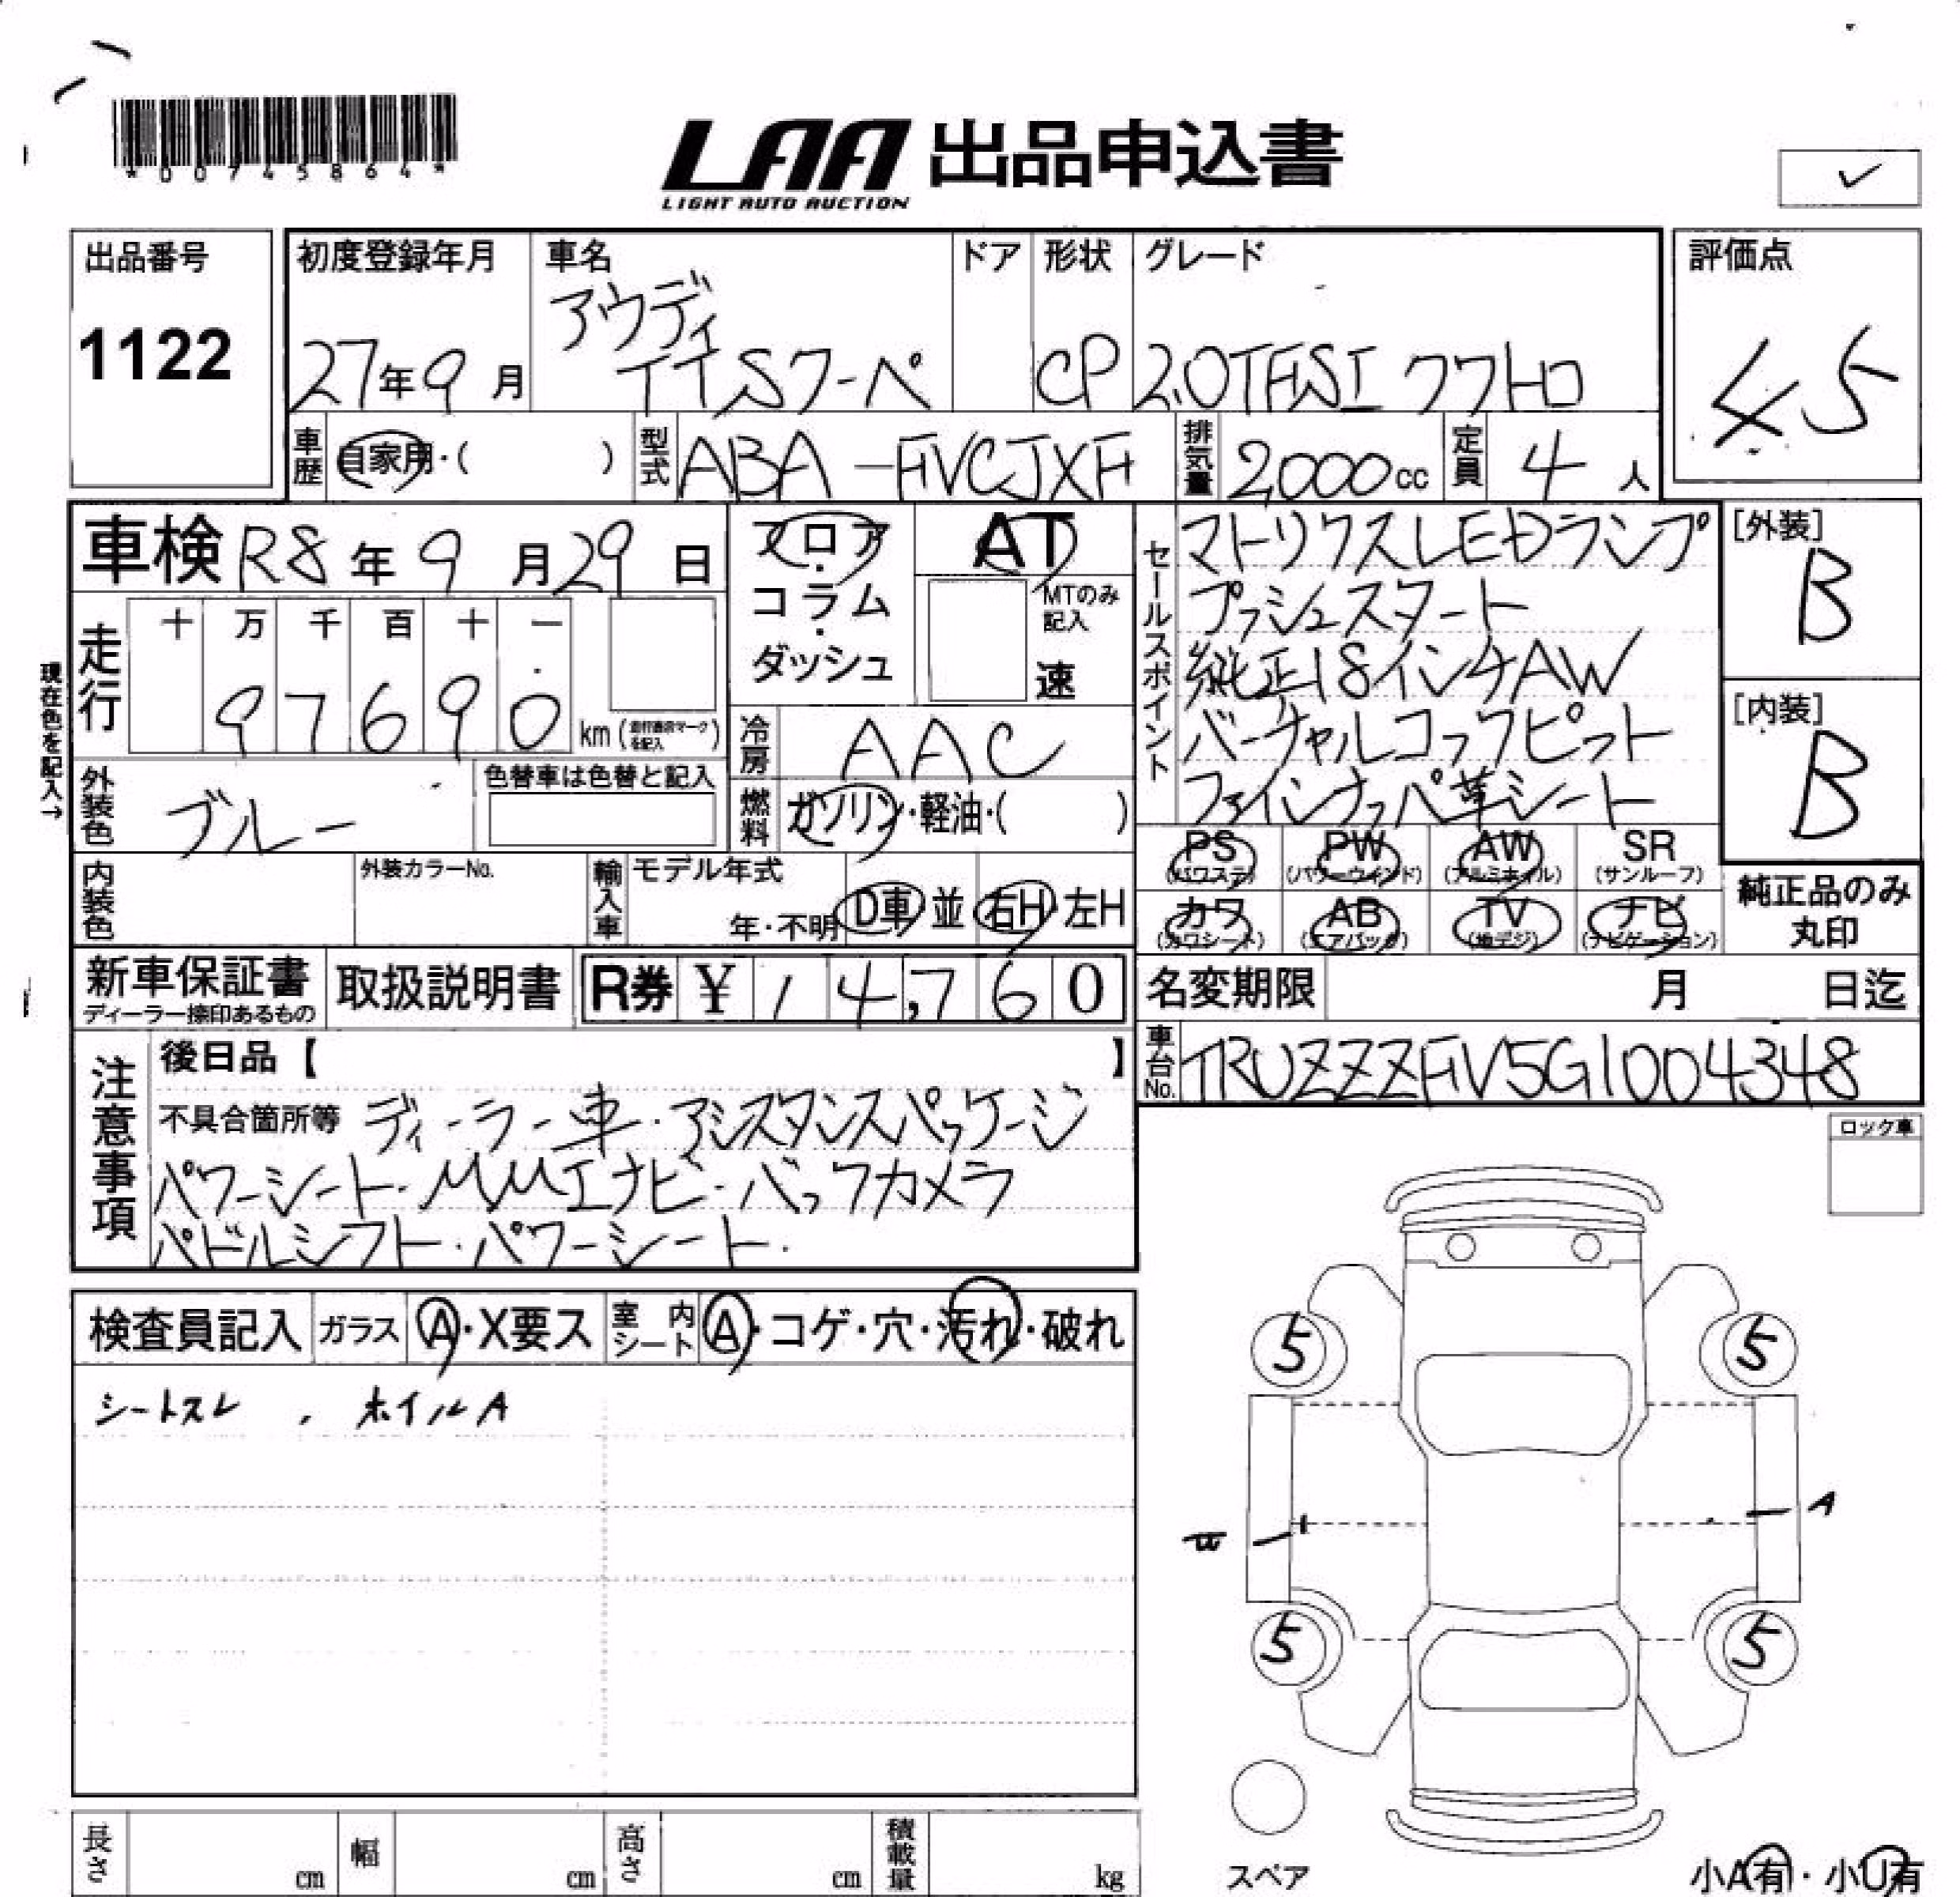 *00745864*
LAA 出品申込書
LIGHT AUTO AUCTION
✓
出品番号
1122
初度登録年月
27年9月
車名
アウディ
TTSクーペ
ドア
形状
CP
グレード
2.0TFSI クワトロ
評価点
4.5
車歴
自家用・( )
型式
ABA-FVCJXF
排気量
2,000cc
定員
4人
車検 R8年9月29日
フロア
コラム
ダッシュ
AT
MTのみ記入
速
セールスポイント
マトリクスLEDランプ
プッシュスタート
純正18インチAW
バーチャルコックピット
ファインナッパ革シート
[外装]
B
[内装]
B
現在色を記入→
走行
十 万 千 百 十 一
97690 km
冷房
AAC
外装色
ブルー
色替車は色替と記入
燃料
ガソリン・軽油・( )
PS (パワステ)
PW (パワーウィンド)
AW (アルミホイル)
SR (サンルーフ)
カワ (カワシート)
AB (エアバッグ)
TV (地デジ)
ナビ (ナビゲーション)
純正品のみ
丸印
内装色
外装カラーNo.
輸入車
モデル年式
年・不明
D車・並
右H・左H
新車保証書
ディーラー捺印あるもの
取扱説明書
R券 ¥14,760
名変期限 月 日迄
車台No.
TRUZZZFV5G1004348
注意事項
後日品【 】
不具合箇所等 ディーラー車・アシスタンスパッケージ
パワーシート・MMIナビ・バックカメラ
パドルシフト・パワーシート・
ロック車
検査員記入
ガラス
A・X要ス
室内シート
A・コゲ・穴・汚れ・破れ
シートスレ 、ホイルA
5
5
A
5
5
スペア
長さ cm
幅 cm
高さ cm
積載量 kg
小A有・小U有